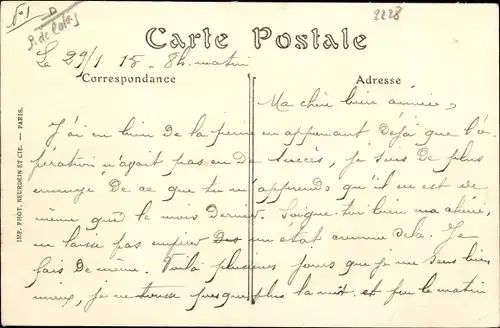 No 1 D
P. de Calais
2228
Carte Postale
Le 29/1 15 - 8h. matin
Correspondance
Adresse
Ma chère bien aimée,
J'ai eu bien de la peine en apprenant déjà que l'o-
pération n'ayait pas eu de succès, je suis de plus
ennuyé de ce que tu m'apprends qu'il en est de
même que le mois dernier. Soigne-toi bien ma chérie,
ne laisse pas empirer un état comme cela. Je
fais de même. Voilà plusieurs jours que je me sens bien
mieux, je ne tousse presque plus la nuit et peu le matin
IMP. PHOT. NEURDEIN ET CIE. — PARIS.